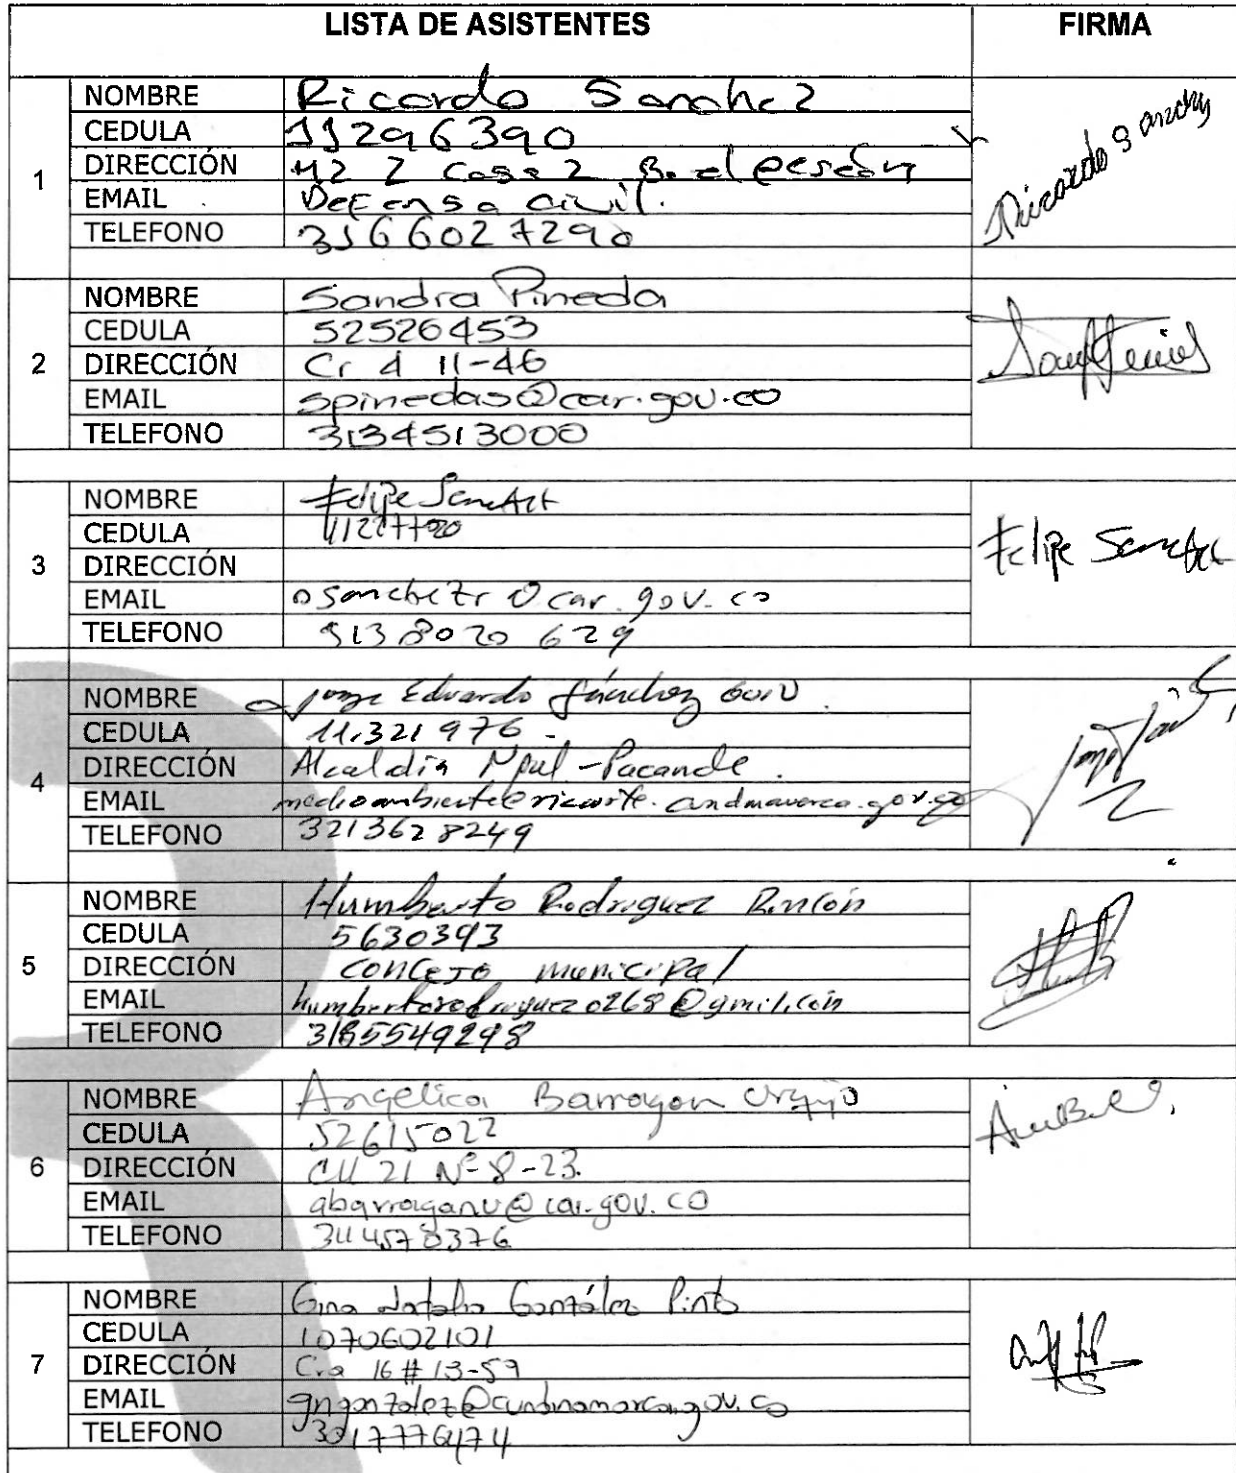 LISTA DE ASISTENTES FIRMA
1
NOMBRE Ricardo Sanchez Ricardo Sanchz
CEDULA 11296390
DIRECCIÓN M2 2 Casa 2 B.
EMAIL Defensa civil.
TELEFONO 3166027290
2
NOMBRE Sandra Pineda
CEDULA 52526453
DIRECCIÓN Cr 4 11-46
EMAIL spinedas@car.gov.co
TELEFONO 3134513000
3
NOMBRE Felipe Sanchez Felipe Sanchez
CEDULA
DIRECCIÓN
EMAIL osanchezr@car.gov.co
TELEFONO 3138020629
4
NOMBRE Jorge Eduardo Sánchez
CEDULA 11.321976-
DIRECCIÓN Alcaldia Mpal-Pacande.
EMAIL medioambiente@ricaurte.cundinamarca.gov.co
TELEFONO 3213628249
5
NOMBRE Humberto Rodriguez Rincón
CEDULA 5630393
DIRECCIÓN concejo municipal
EMAIL humbertorodriguez0268@gmil.com
TELEFONO 3185549298
6
NOMBRE Angelica Barragan
CEDULA 52615022
DIRECCIÓN Cll 21 Nº 8-23.
EMAIL abarraganu@car.gov.co
TELEFONO 3114578376
7
NOMBRE Gina Natalia González Pinto
CEDULA 1070602101
DIRECCIÓN Cra 16 # 13-59
EMAIL gngonzalez@cundinamarca.gov.co
TELEFONO 3017776474